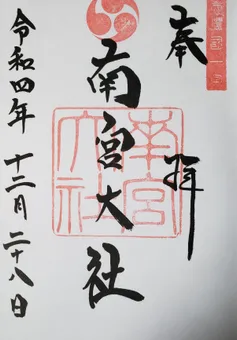 奉拝
南宮大社
令和四年 十二月 二十八日
南宮大社